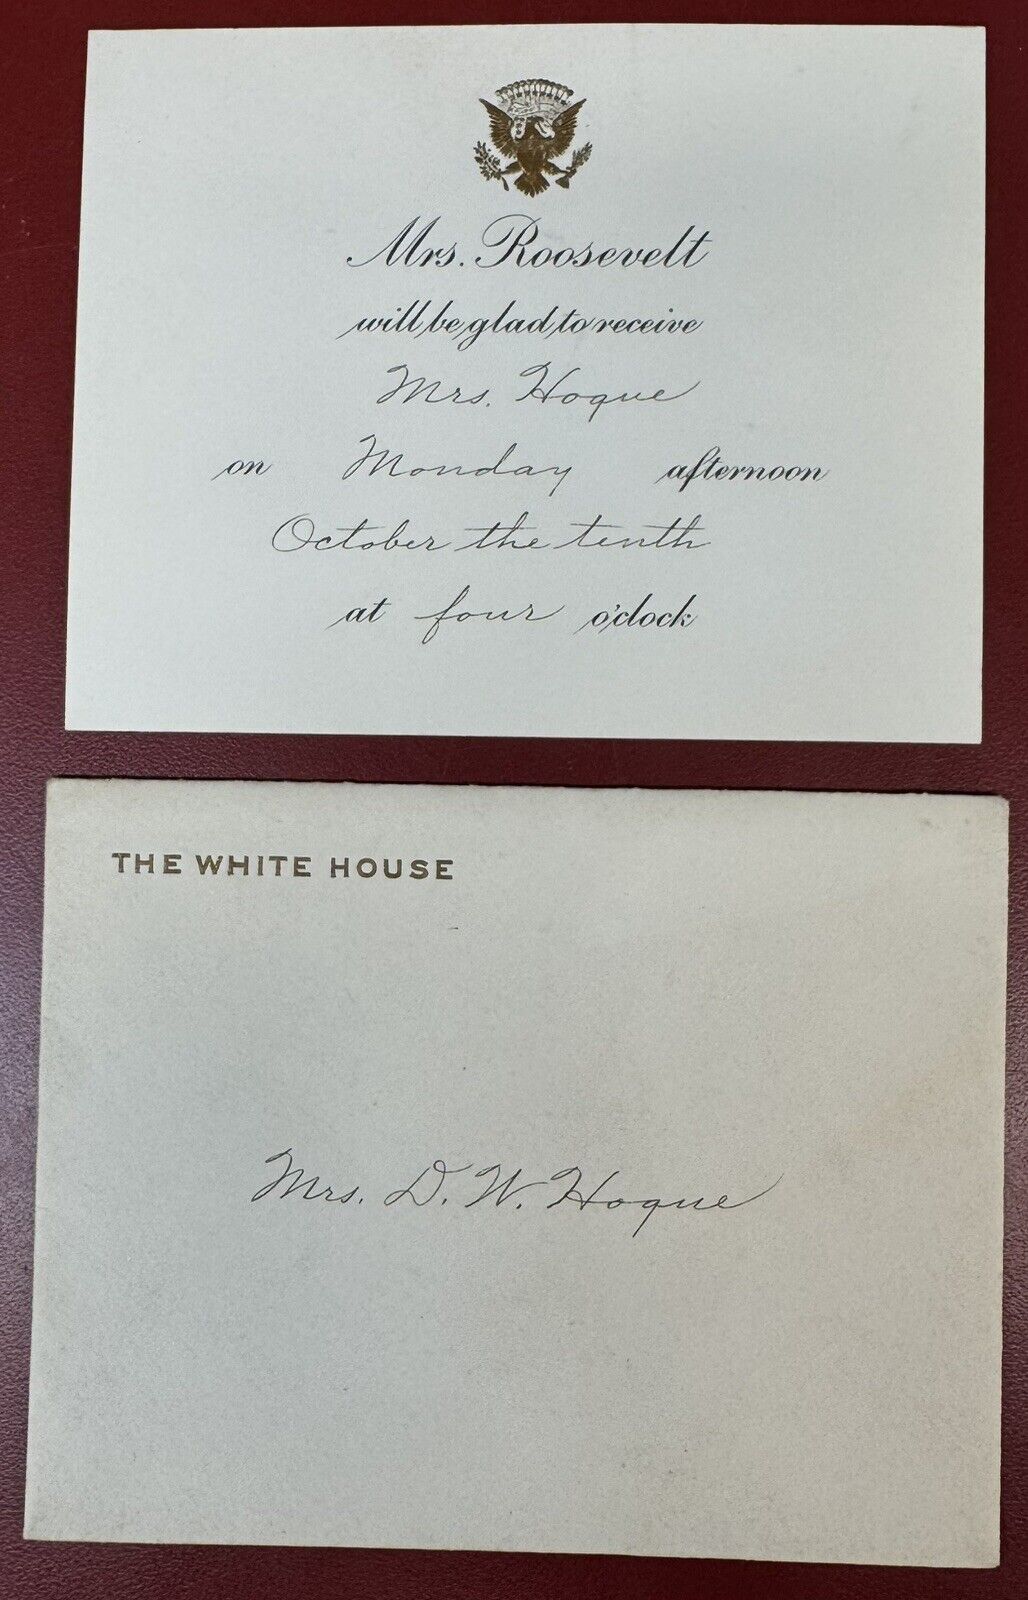 Mrs. Roosevelt
will be glad to receive
Mrs. Hogue
on Monday afternoon
October the tenth
at four o'clock
THE WHITE HOUSE
Mrs. D. W. Hogue